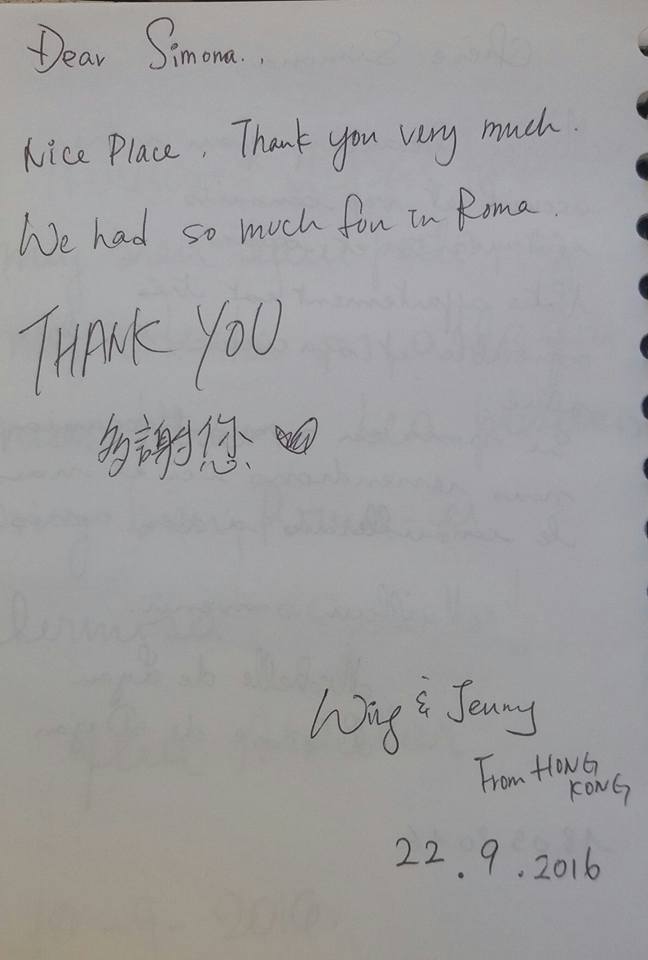 Dear Simona..
Nice Place. Thank you very much.
We had so much fun in Roma.
THANK YOU
多謝您
Wing & Jenny
From HONG
KONG
22.9.2016